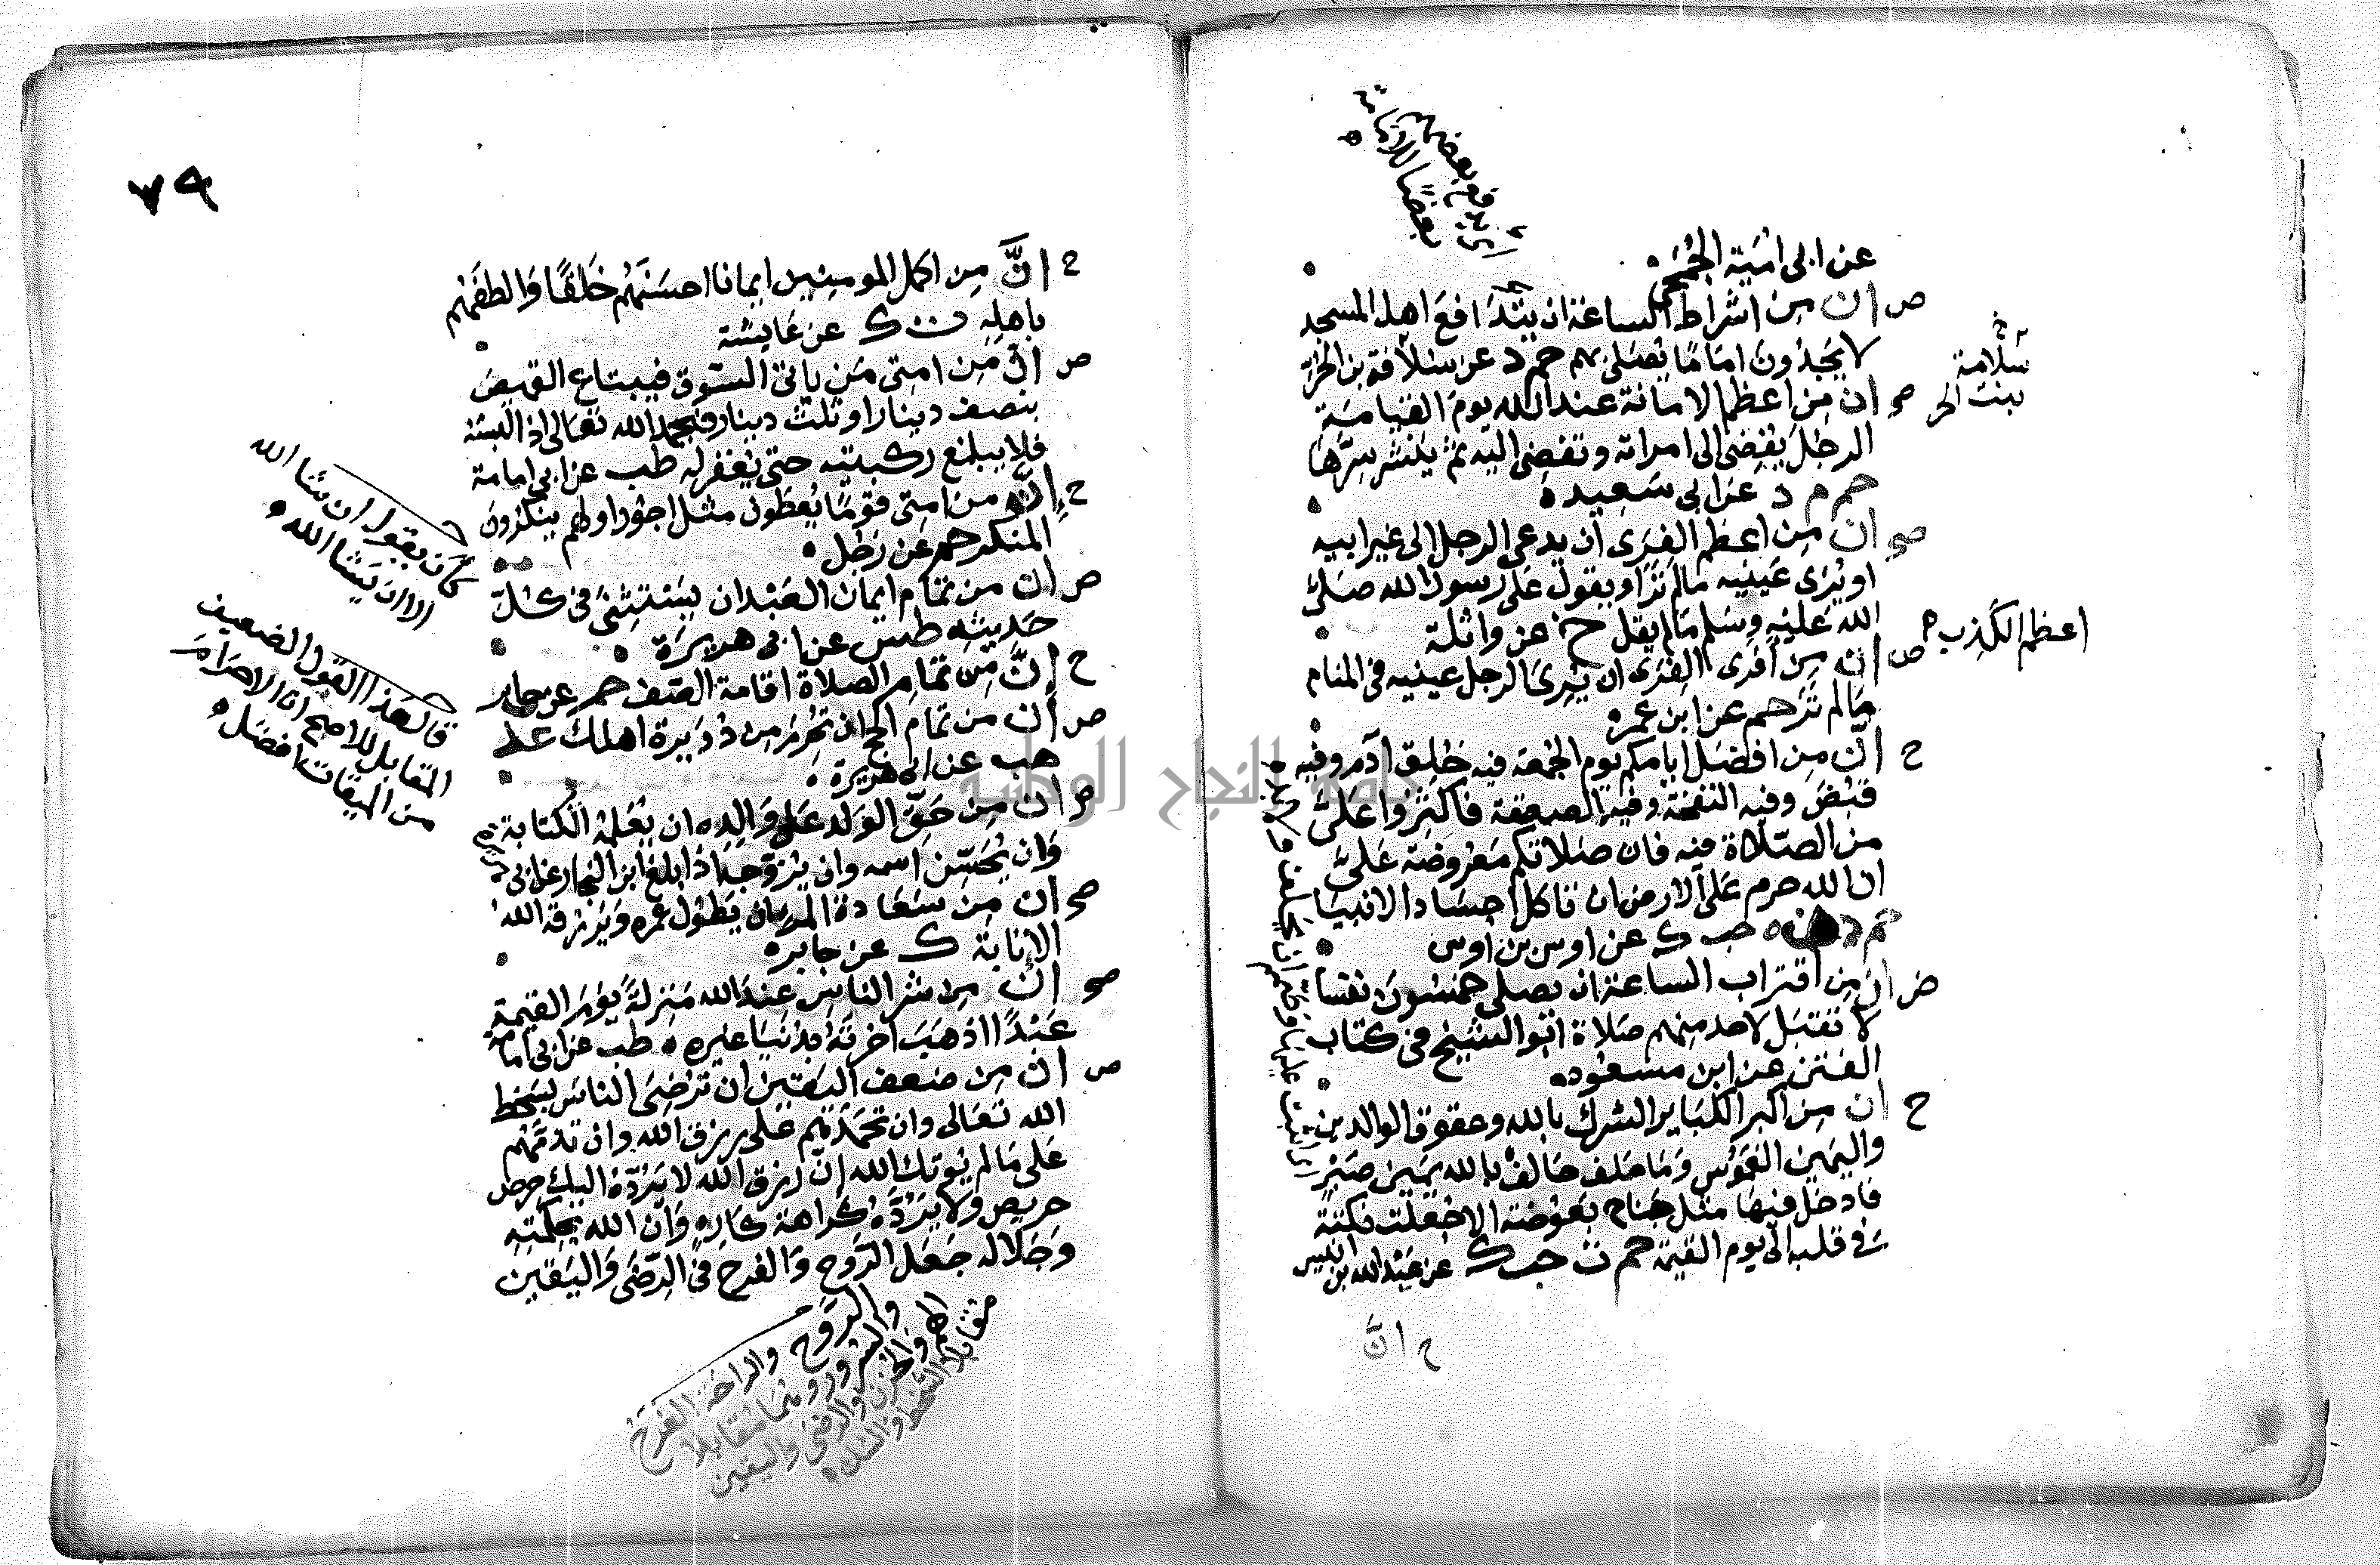 عن ابى امية الجمحى
ص ان من اشراط الساعة ان يتدافع اهل المسجد
لا يجدون اماما يصلى بهم حم د عن سلامة بنت الحر
صح ان من اعظم الامانة عند الله يوم القيامة
الرجل يفضى الى امراته وتفضى اليه ثم ينشر سرها
حم م د عن ابى سعيد
صح ان من اعظم الفرى ان يدعى الرجل الى غير ابيه
او يرى عينيه مالم تر او يقول على رسول الله صلى
الله عليه وسلم مالم يقل خ عن واثلة
ص ان من افرى الفرى ان يرى الرجل عينيه فى المنام
مالم تر حم عن ابن عمر
ح ان من افضل ايامكم يوم الجمعة فيه خلق آدم وفيه
قبض وفيه النفخة وفيه الصعقة فاكثروا على
من الصلاة فيه فان صلاتكم معروضة على
ان الله حرم على الارض ان تاكل اجساد الانبيا
حم د ن ه حب ك عن اوس بن اوس
ض ان من اقتراب الساعة ان يصلى خمسون نفسا
لا تقبل لاحد منهم صلاة ابو الشيخ فى كتاب
الفتن عن ابن مسعود
ح ان من اكبر الكباير الشرك بالله وعقوق الوالدين
واليمين الغموس وما حلف حالف بالله يمين صبر
فادخل فيها مثل جناح بعوضة الا جعلت نكتة
فى قلبه الى يوم القيمة حم ت حب ك عن عبد الله بن انيس
ح ان
سلامة
بنت الحر
اعظم الكذب
اى يدفع بعضهم
بعضا للامامة
٧٩
ح ان من اكمل المومنين ايمانا احسنهم خلقا والطفهم
باهله ت ك عن عايشة
ص ان من امتى من ياتى السوق فيبتاع القميص
بنصف دينار او ثلث دينار فيحمد الله تعالى اذا لبسه
فلا يبلغ ركبتيه حتى يغفر له طب عن ابى امامة
ح ان من امتى قوما يعطون مثل اجور اولهم ينكرون
المنكر حم عن رجل
ص ان من تمام ايمان العبد ان يستثنى فى كل
حديثه طس عن ابى هريرة
ح ان من تمام الصلاة اقامة الصف حم عن جابر
ص ان من تمام الحج ان تحرم من دويرة اهلك عد
هب عن ابى هريرة
ص ان من حق الولد على والده ان يعلمه الكتابة
وان يحسن اسمه وان يزوجه اذا بلغ ابن النجار عن ابى
صح ان من سعادة المرء ان يطول عمره ويرزقه الله
الانابة ك عن جابر
صح ان من شر الناس عند الله منزلة يوم القيمة
عبدا اذهب آخرته بدنيا غيره طب عن ابى امامة
ص ان من ضعف اليقين ان ترضى الناس بسخط
الله تعالى وان تحمدهم على رزق الله وان تذمهم
على مالم يوتك الله ان رزق الله لا يجره اليك حرص
حريص ولا يرده كراهة كاره وان الله بحكمته
وجلاله جعل الروح والفرح فى الرضى واليقين
كان يقول ان شا الله
الا ان يشا الله
قال هذا القول الضعيف
المقابل للاصح اما الاحرام
من الميقات افضل
والروح والراحة الفرح
والسرور
الهم والحزن والرضى واليقين